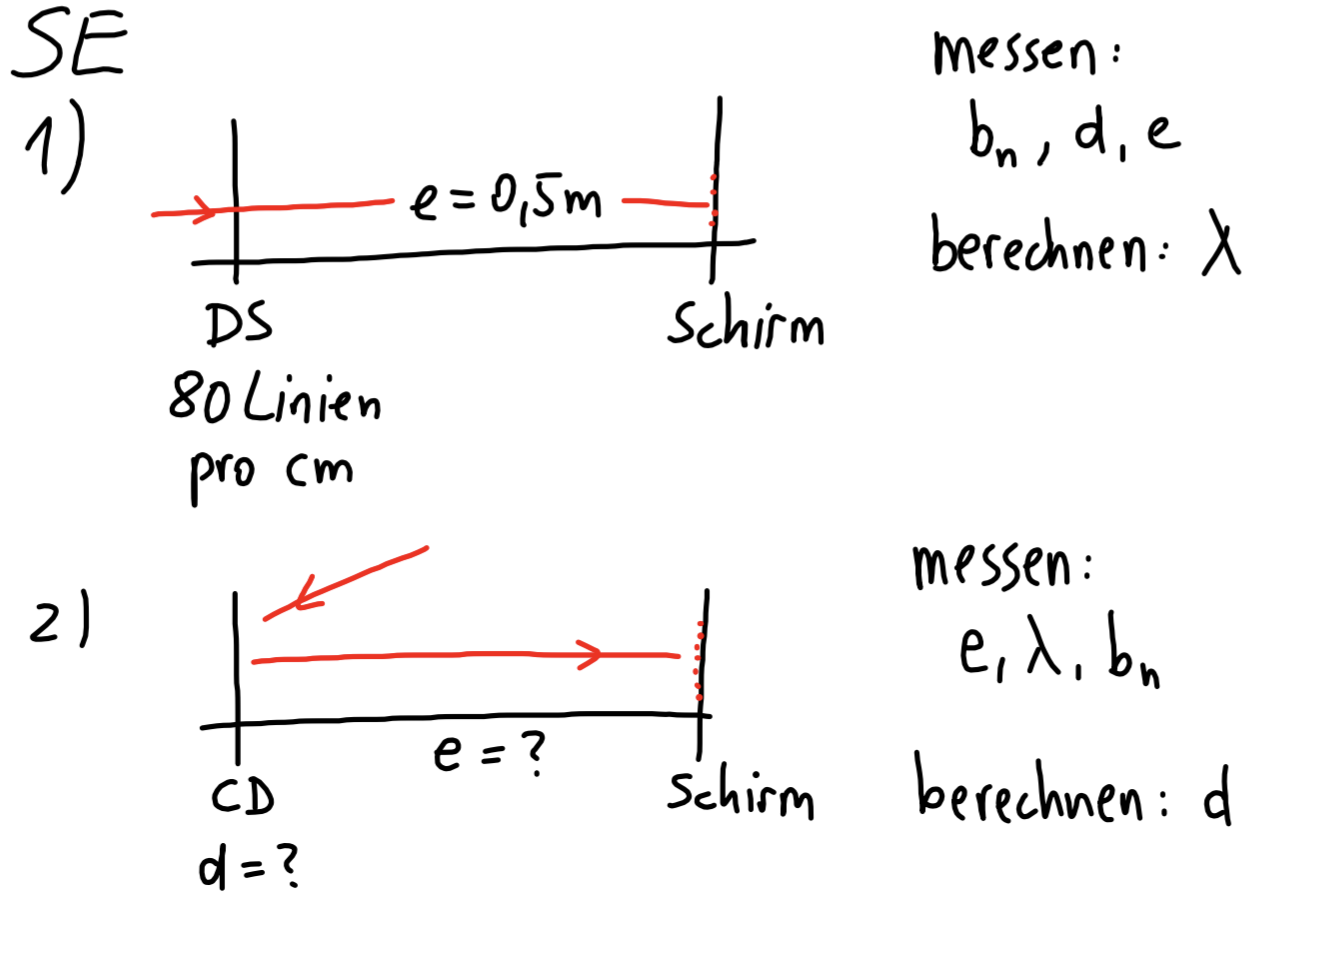 SE
1)
e = 0,5m
DS
Schirm
80 Linien
pro cm
messen:
bn, d, e
berechnen: λ
2)
e = ?
CD
Schirm
d = ?
messen:
e, λ, bn
berechnen: d